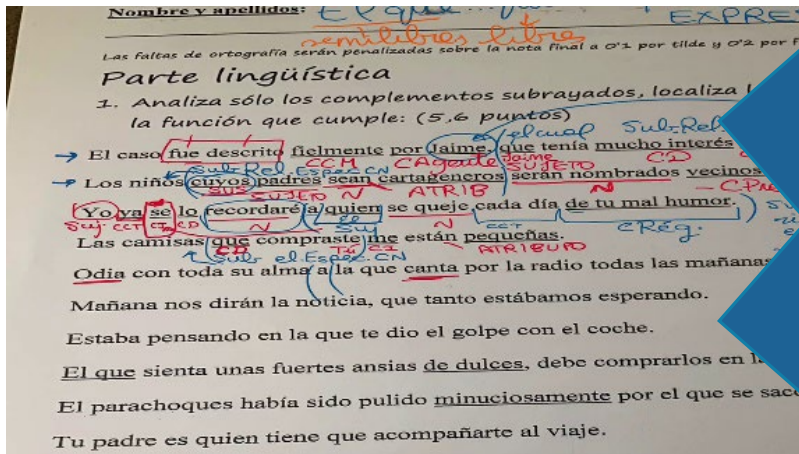 Nombre y apellidos: El que
EXPRE
semilibres libres
Las faltas de ortografía serán penalizadas sobre la nota final a 0'1 por tilde y 0'2 por f
Parte lingüística
1. Analiza sólo los complementos subrayados, localiza l
la función que cumple: (5,6 puntos)
el cual Sub. Rel.
→ El caso fue descrito fielmente por Jaime, que tenía mucho interés
CCM CAgente Jaime SUJETO CD
Sub Rel. Espec. CN
→ Los niños cuyos padres sean cartageneros serán nombrados vecinos
SUJETO N ATRIB N CPre
Yo ya se lo recordaré a quien se queje cada día de tu mal humor.
Suj CCT CI CD N Suj N CCT CRég.
Las camisas que compraste me están pequeñas.
CD Tú CI ATRIBUTO
Espec. CN
Odia con toda su alma a la que canta por la radio todas las mañanas
Mañana nos dirán la noticia, que tanto estábamos esperando.
Estaba pensando en la que te dio el golpe con el coche.
El que sienta unas fuertes ansias de dulces, debe comprarlos en l
El parachoques había sido pulido minuciosamente por el que se sac
Tu padre es quien tiene que acompañarte al viaje.